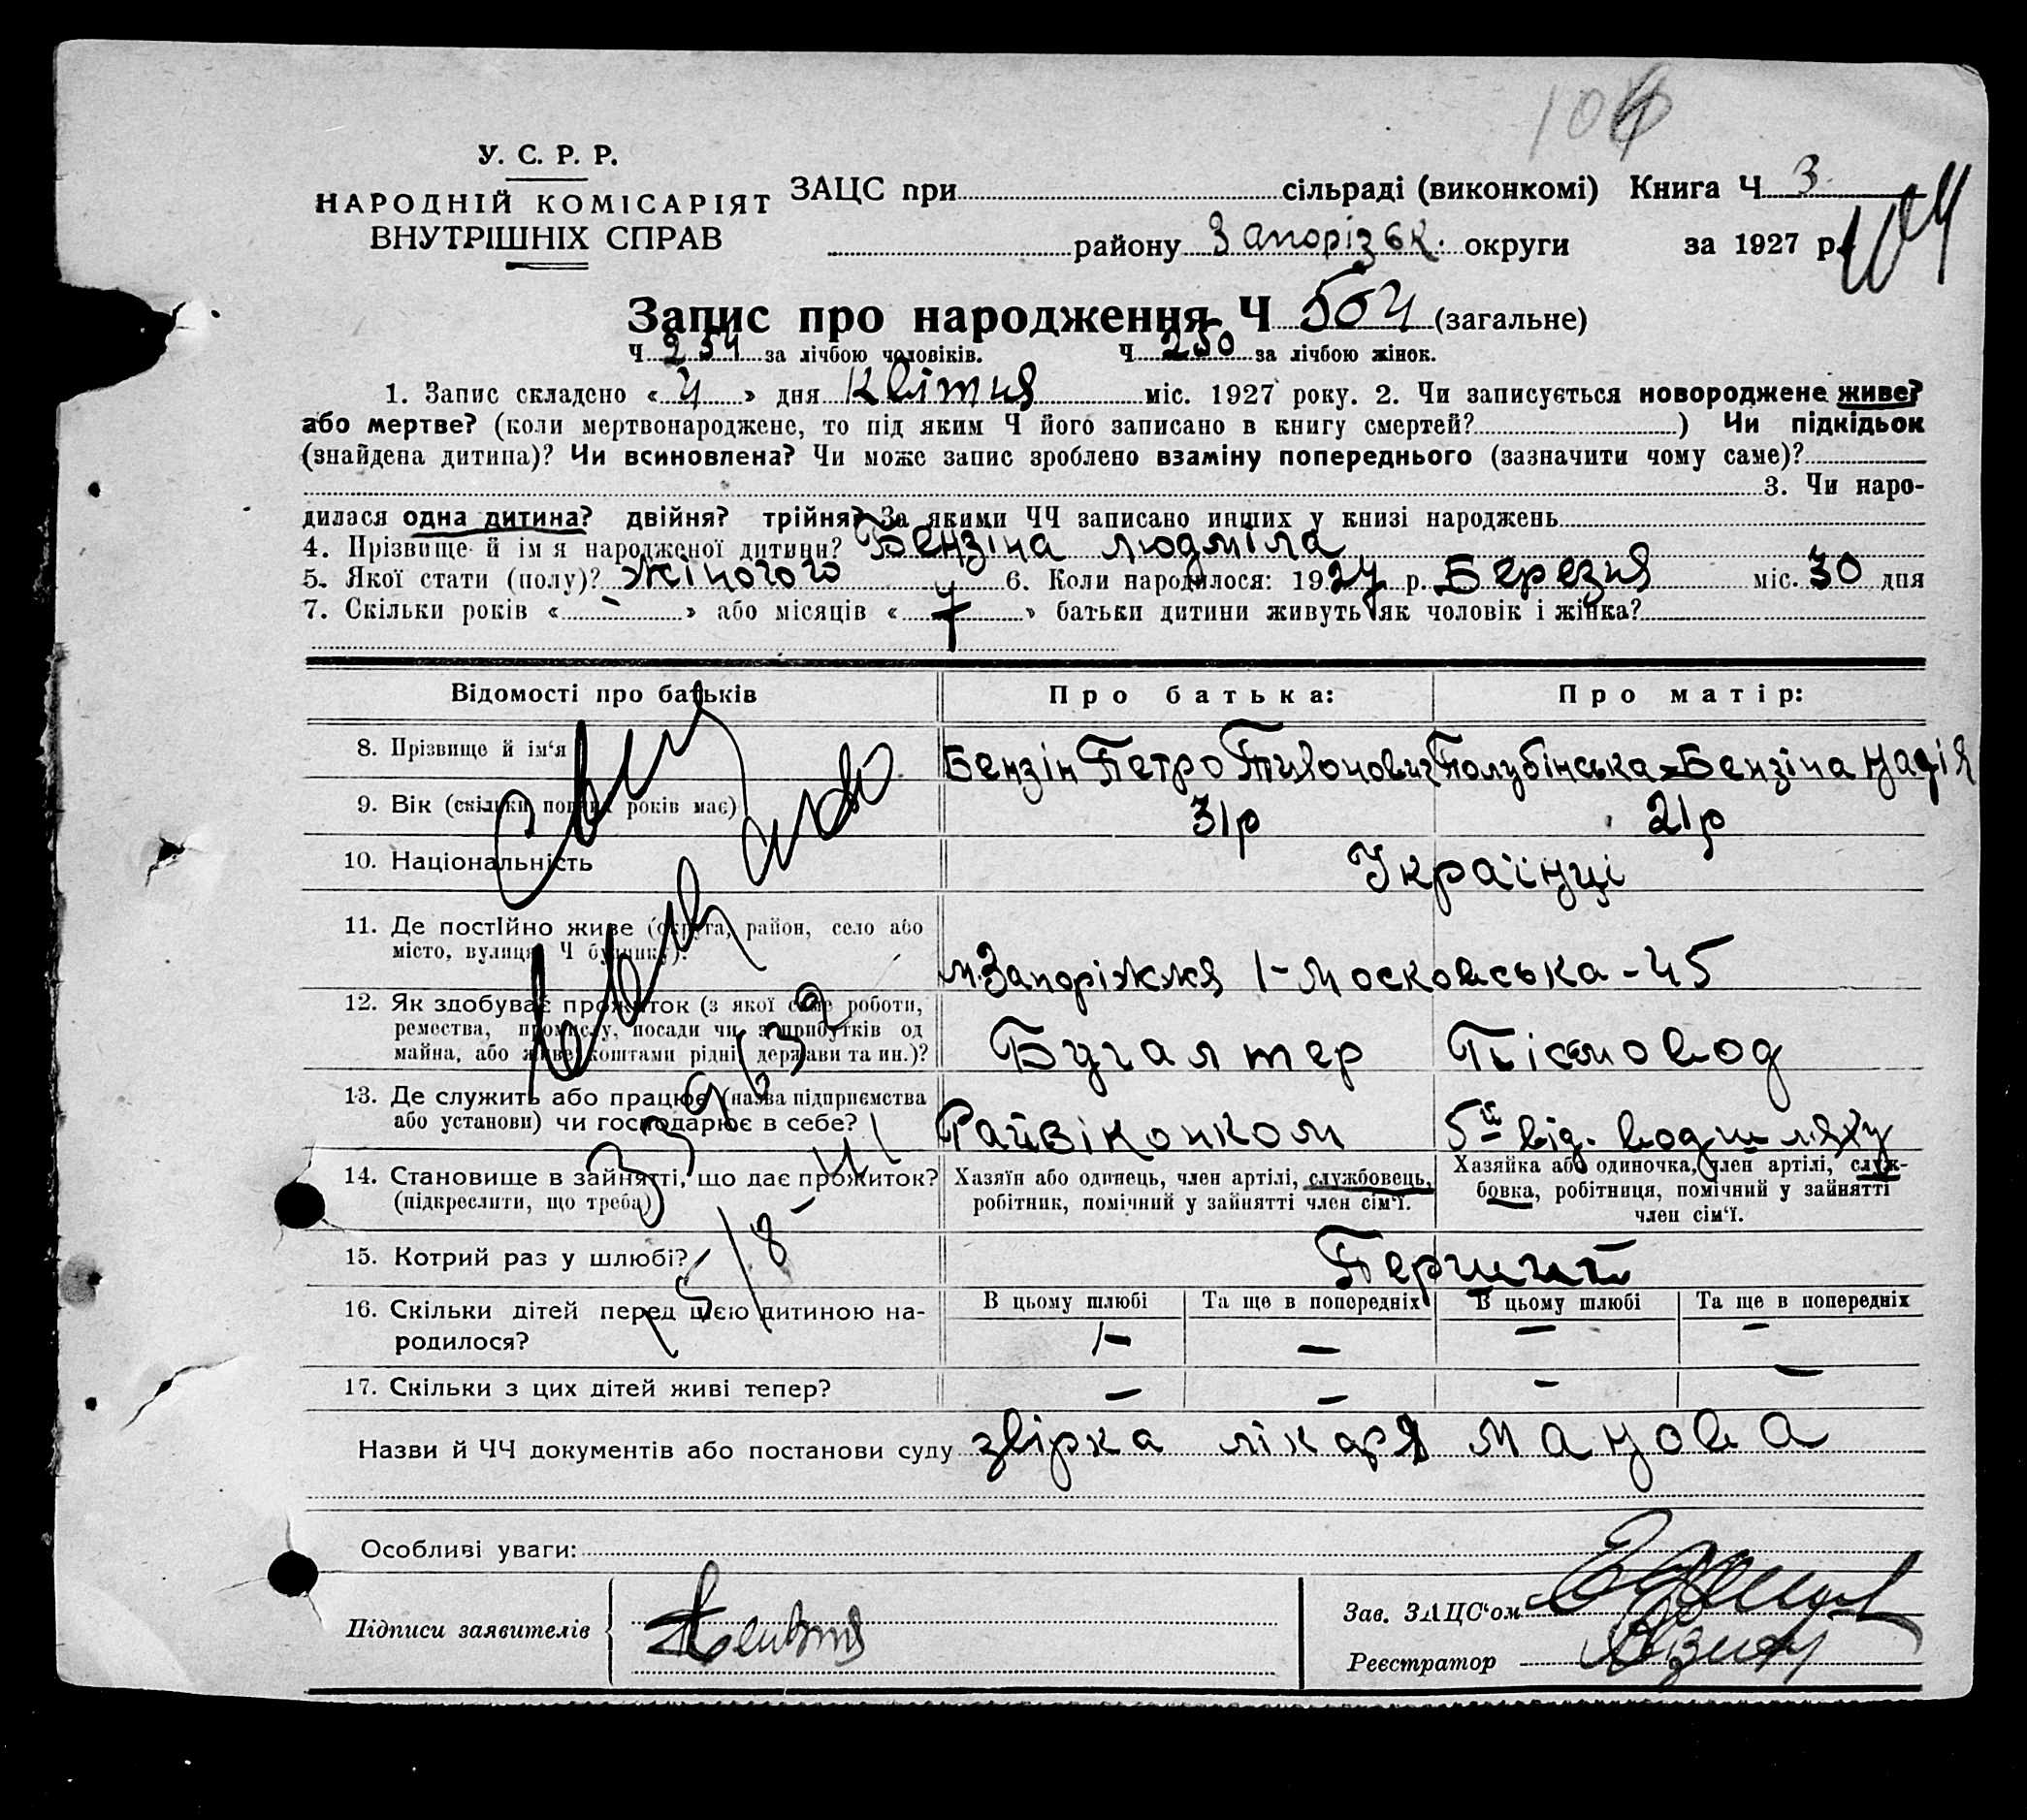 104
У. С. Р. Р.
НАРОДНІЙ КОМІСАРІЯТ
ВНУТРІШНІХ СПРАВ
ЗАЦС при сільраді (виконкомі) Книга Ч 3
району Запорізьк. округи за 1927 р.
104
Запис про народження Ч 504 (загальне)
Ч 254 за лічбою чоловіків. Ч 250 за лічбою жінок.
1. Запис складено « 4 » дня Квітня міс. 1927 року. 2. Чи записується новороджене живе?
або мертве? (коли мертвонароджене, то під яким Ч його записано в книгу смертей? ) Чи підкідьок
(знайдена дитина)? Чи всиновлена? Чи може запис зроблено взаміну попереднього (зазначити чому саме)?
3. Чи наро-
дилася одна дитина? двійня? трійня? За якими ЧЧ записано инших у книзі народжень
4. Прізвище й ім я народженої дитини? Бензіна Людміла
5. Якої стати (полу)? жіночого 6. Коли народилося: 1927 р. Березня міс. 30 дня
7. Скільки років « - » або місяців « 7 » батьки дитини живуть як чоловік і жінка?
Відомості про батьків Про батька: Про матір:
8. Прізвище й ім'я Бензін Петро Тихонович Полубінська-Бензіна Надія
9. Вік (скільки повних років має) 31р 21р
10. Національність Українці
11. Де постійно живе (округа, район, село або
місто, вулиця, Ч будинку). м. Запоріжжя 1-Московська-45
12. Як здобуває прожиток (з якої саме роботи,
ремества, промислу, посади чи з прибутків од
майна, або живе коштами рідні, держави та ин.)? Бугалтер Пісмовод
13. Де служить або працює (назва підприємства
або установи) чи господарює в себе? Райвіконком 5й від. водн шляху
14. Становище в зайнятті, що дає прожиток?
(підкреслити, що треба)
Хазяїн або одинець, член артілі, службовець,
робітник, помічний у зайнятті член сім'ї.
Хазяйка або одиночка, член артілі, служ-
бовка, робітниця, помічний у зайнятті
член сім'ї.
15. Котрий раз у шлюбі? Перший
16. Скільки дітей перед цією дитиною на-
родилося?
В цьому шлюбі Та ще в попередніх В цьому шлюбі Та ще в попередніх
- - - -
17. Скільки з цих дітей живі тепер? - - - -
Назви й ЧЧ документів або постанови суду звірка лікаря Манова
Особливі уваги:
Підписи заявителів
Зав. ЗАЦС'ом
Реєстратор